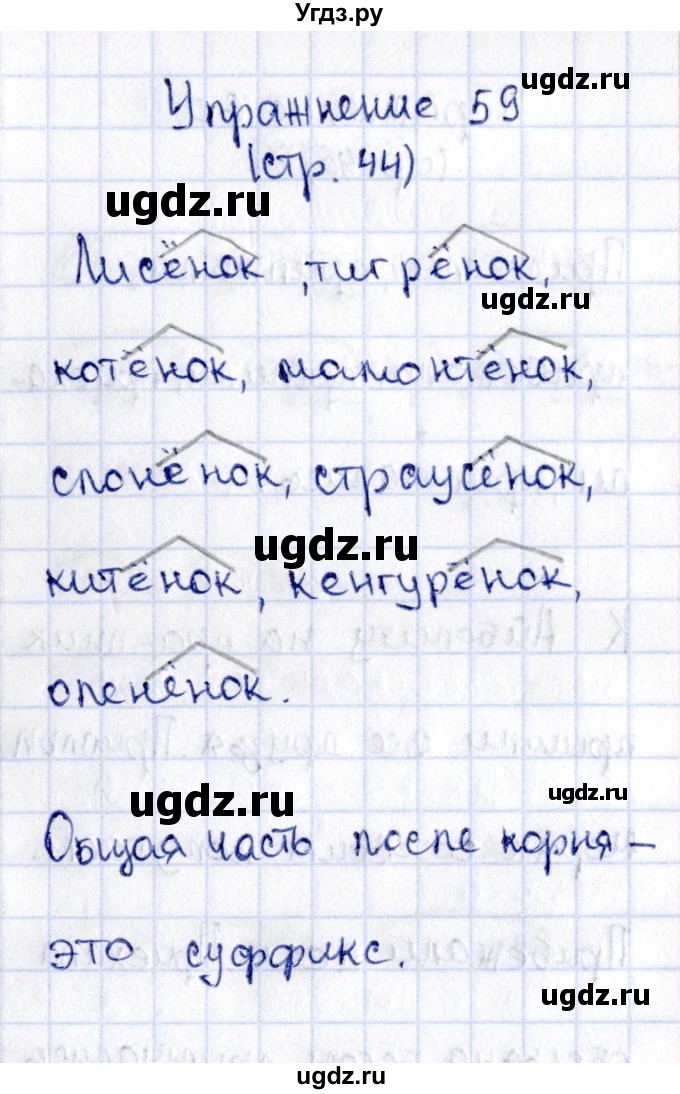 Угдз.ру
ugdz.ru
Упражнение 59
(стр. 44)
ugdz.ru
Лисёнок, тигрёнок,
ugdz.ru
котёнок, мамонтёнок,
слонёнок, страусёнок,
ugdz.ru
китёнок, кенгурёнок,
оленёнок.
ugdz.ru
ugdz.ru
Общая часть после корня –
это суффикс.
ugdz.ru
ugdz.ru